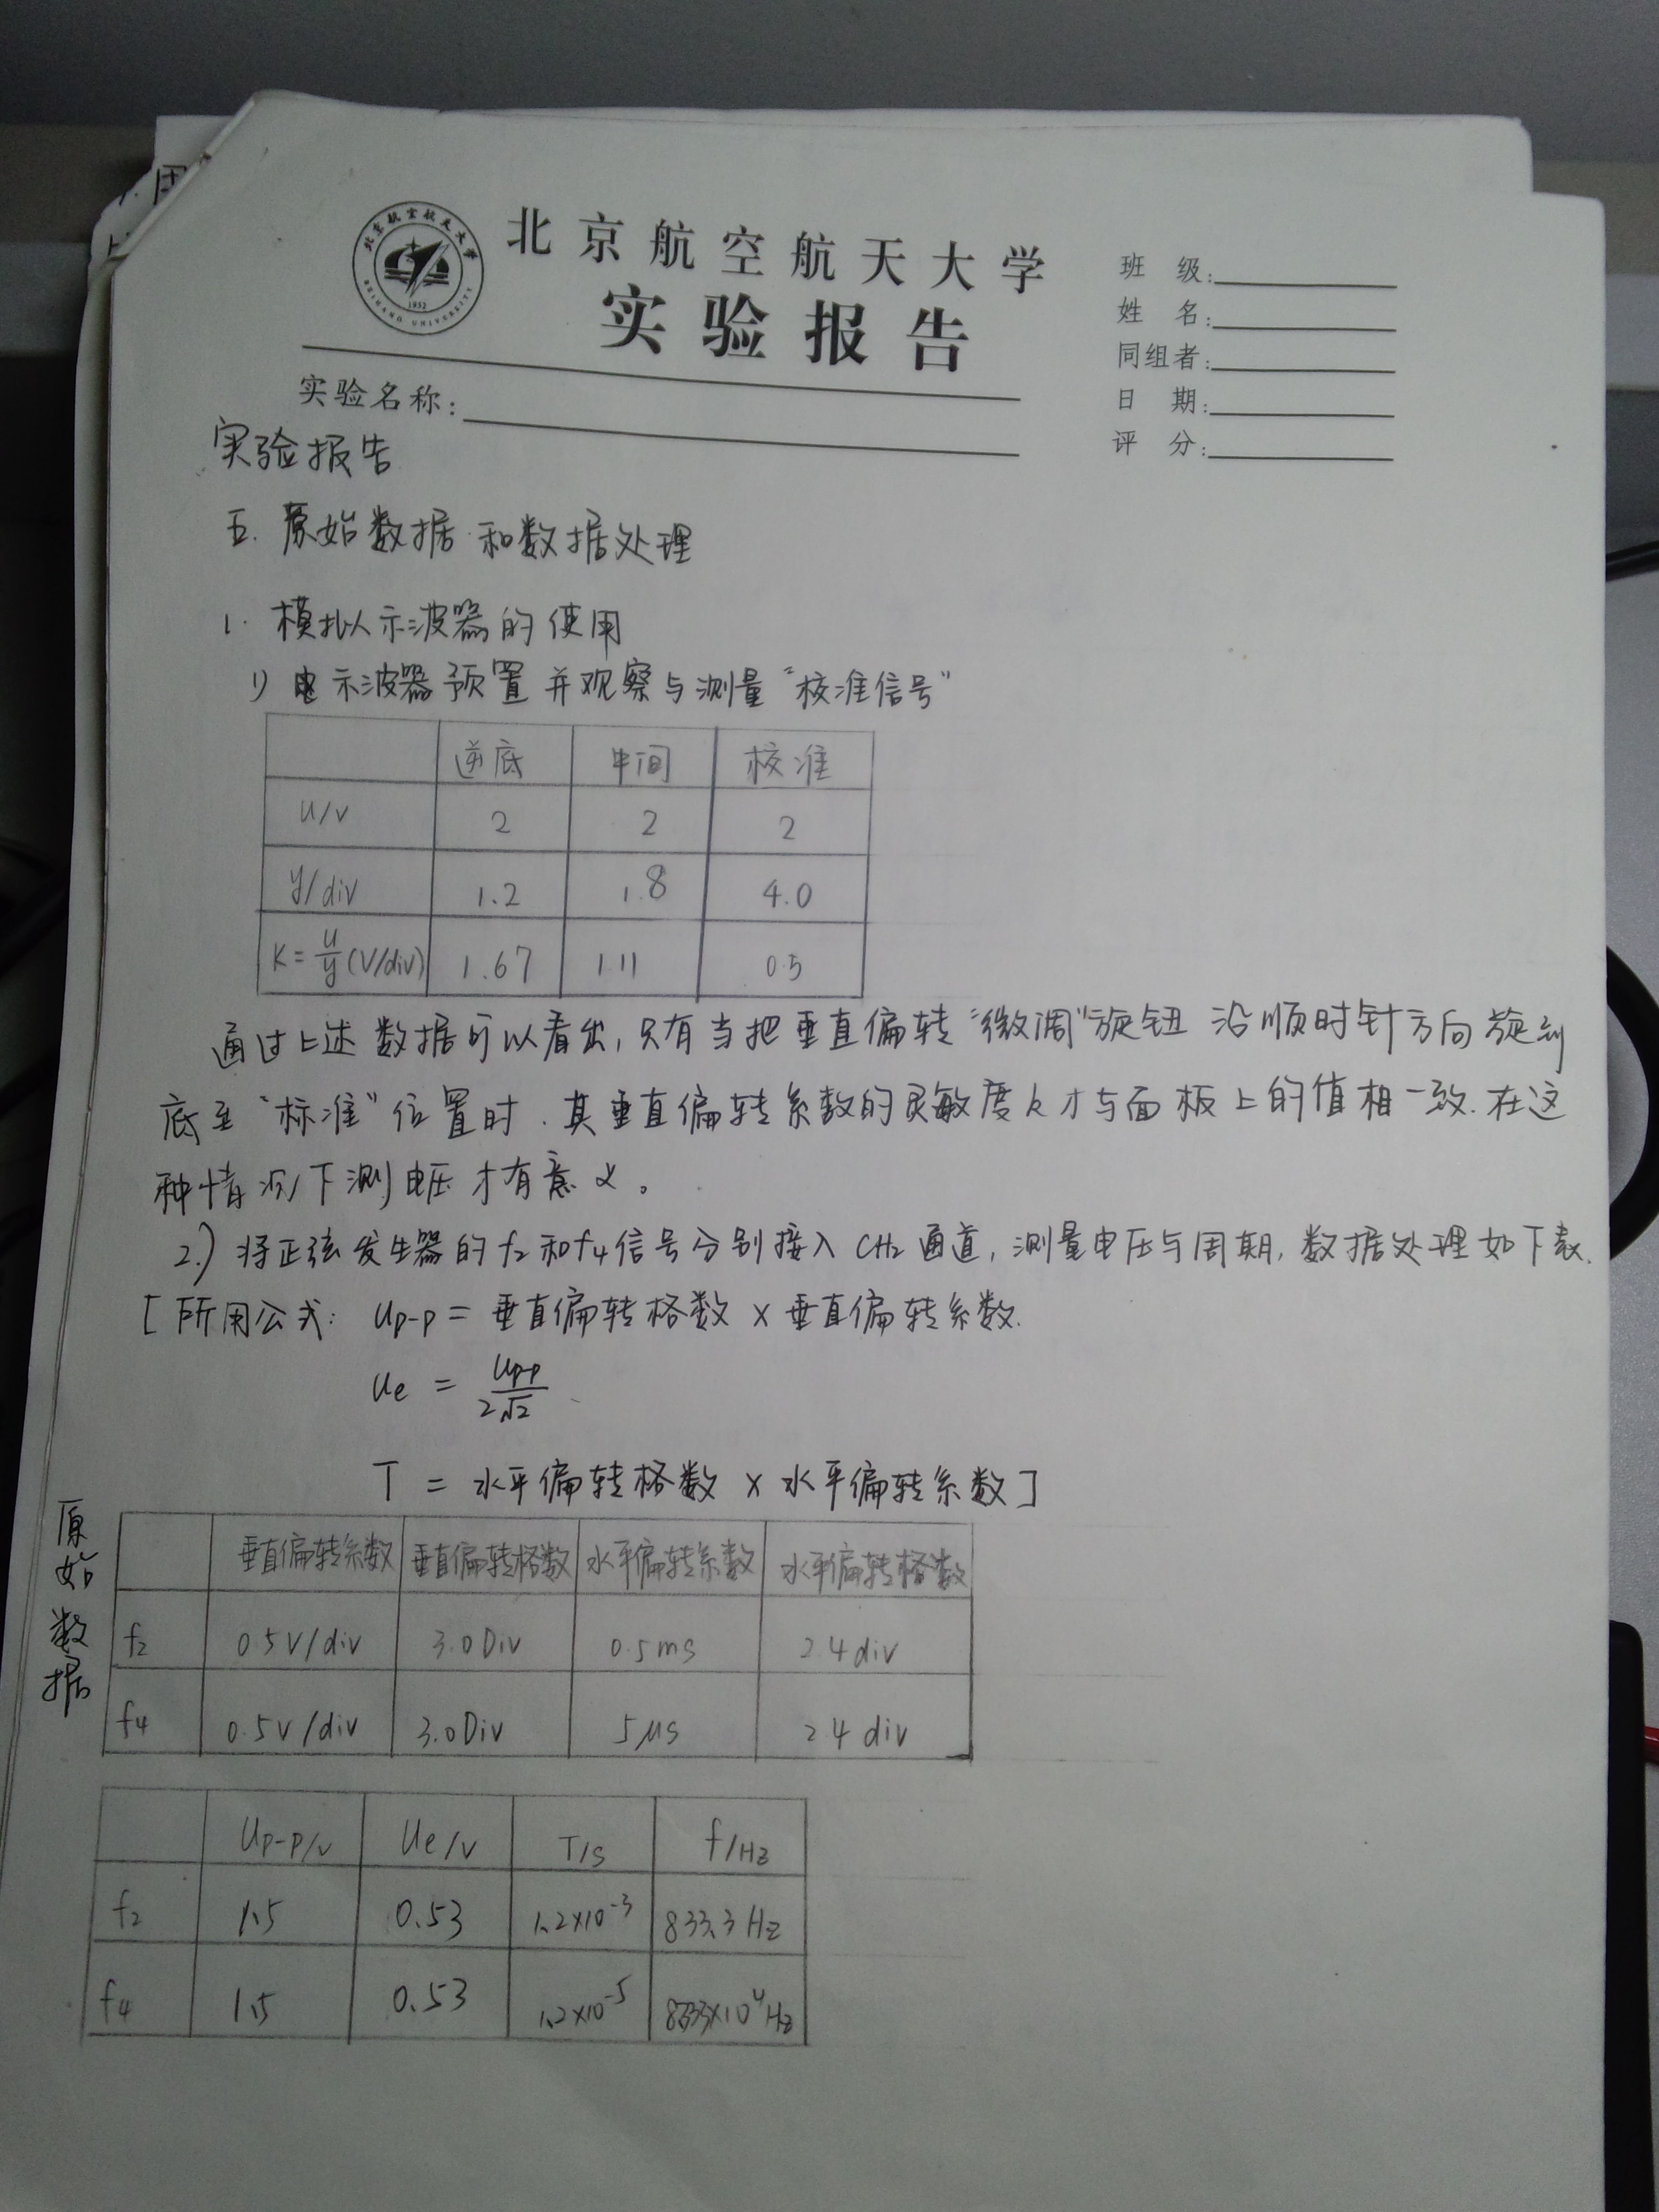 北京航空航天大学
实验报告
班 级:
姓 名:
同组者:
日 期:
评 分:
实验名称:
实验报告
五. 原始数据和数据处理
1. 模拟示波器的使用
1) 示波器预置并观察与测量"校准信号"
逆底 中间 校准
U/V 2 2 2
y/div 1.2 1.8 4.0
K=U/y(V/div) 1.67 1.11 0.5
通过上述数据可以看出,只有当把垂直偏转"微调"旋钮沿顺时针方向旋到
底至"标准"位置时.其垂直偏转系数的灵敏度k才与面板上的值相一致.在这
种情况下测电压才有意义。
2.) 将正弦发生器的f2和f4信号分别接入CH2通道,测量电压与周期,数据处理如下表.
[所用公式: Up-p = 垂直偏转格数 × 垂直偏转系数.
Ue = Up-p/2√2
T = 水平偏转格数 × 水平偏转系数]
原始数据
垂直偏转系数 垂直偏转格数 水平偏转系数 水平偏转格数
f2 0.5V/div 3.0Div 0.5ms 2.4div
f4 0.5V/div 3.0Div 5μs 2.4div
Up-p/V Ue/V T/s f/Hz
f2 1.5 0.53 1.2×10⁻³ 833.3Hz
f4 1.5 0.53 1.2×10⁻⁵ ×10⁴Hz